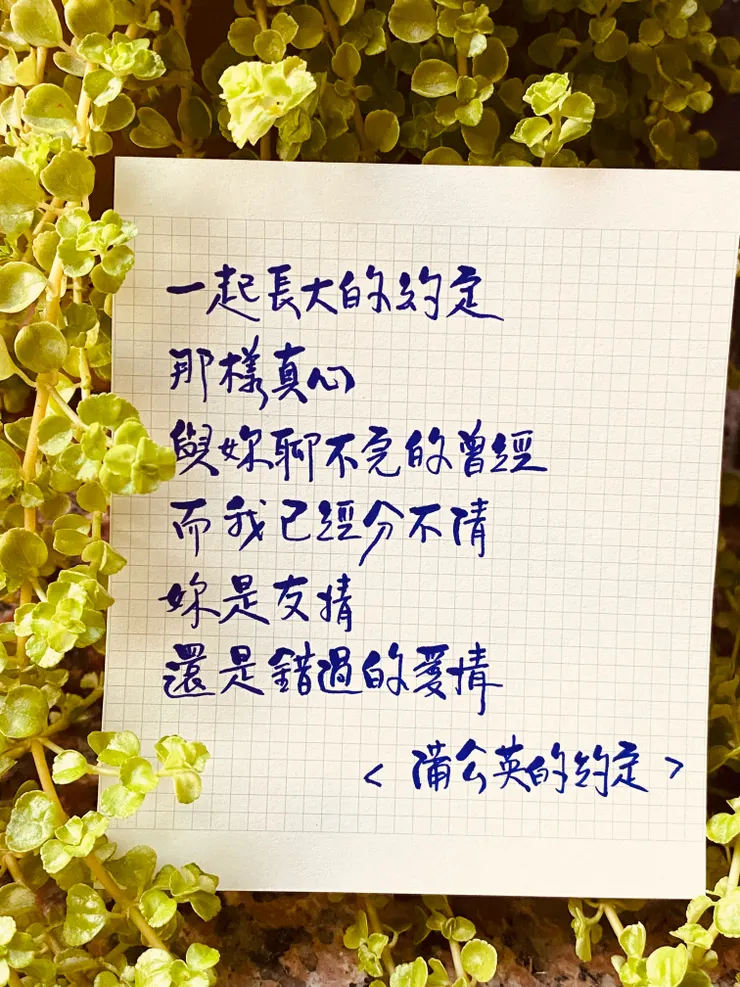 一起長大的約定
那樣真心
與妳聊不完的曾經
而我已經分不清
妳是友情
還是錯過的愛情
< 蒲公英的約定 >